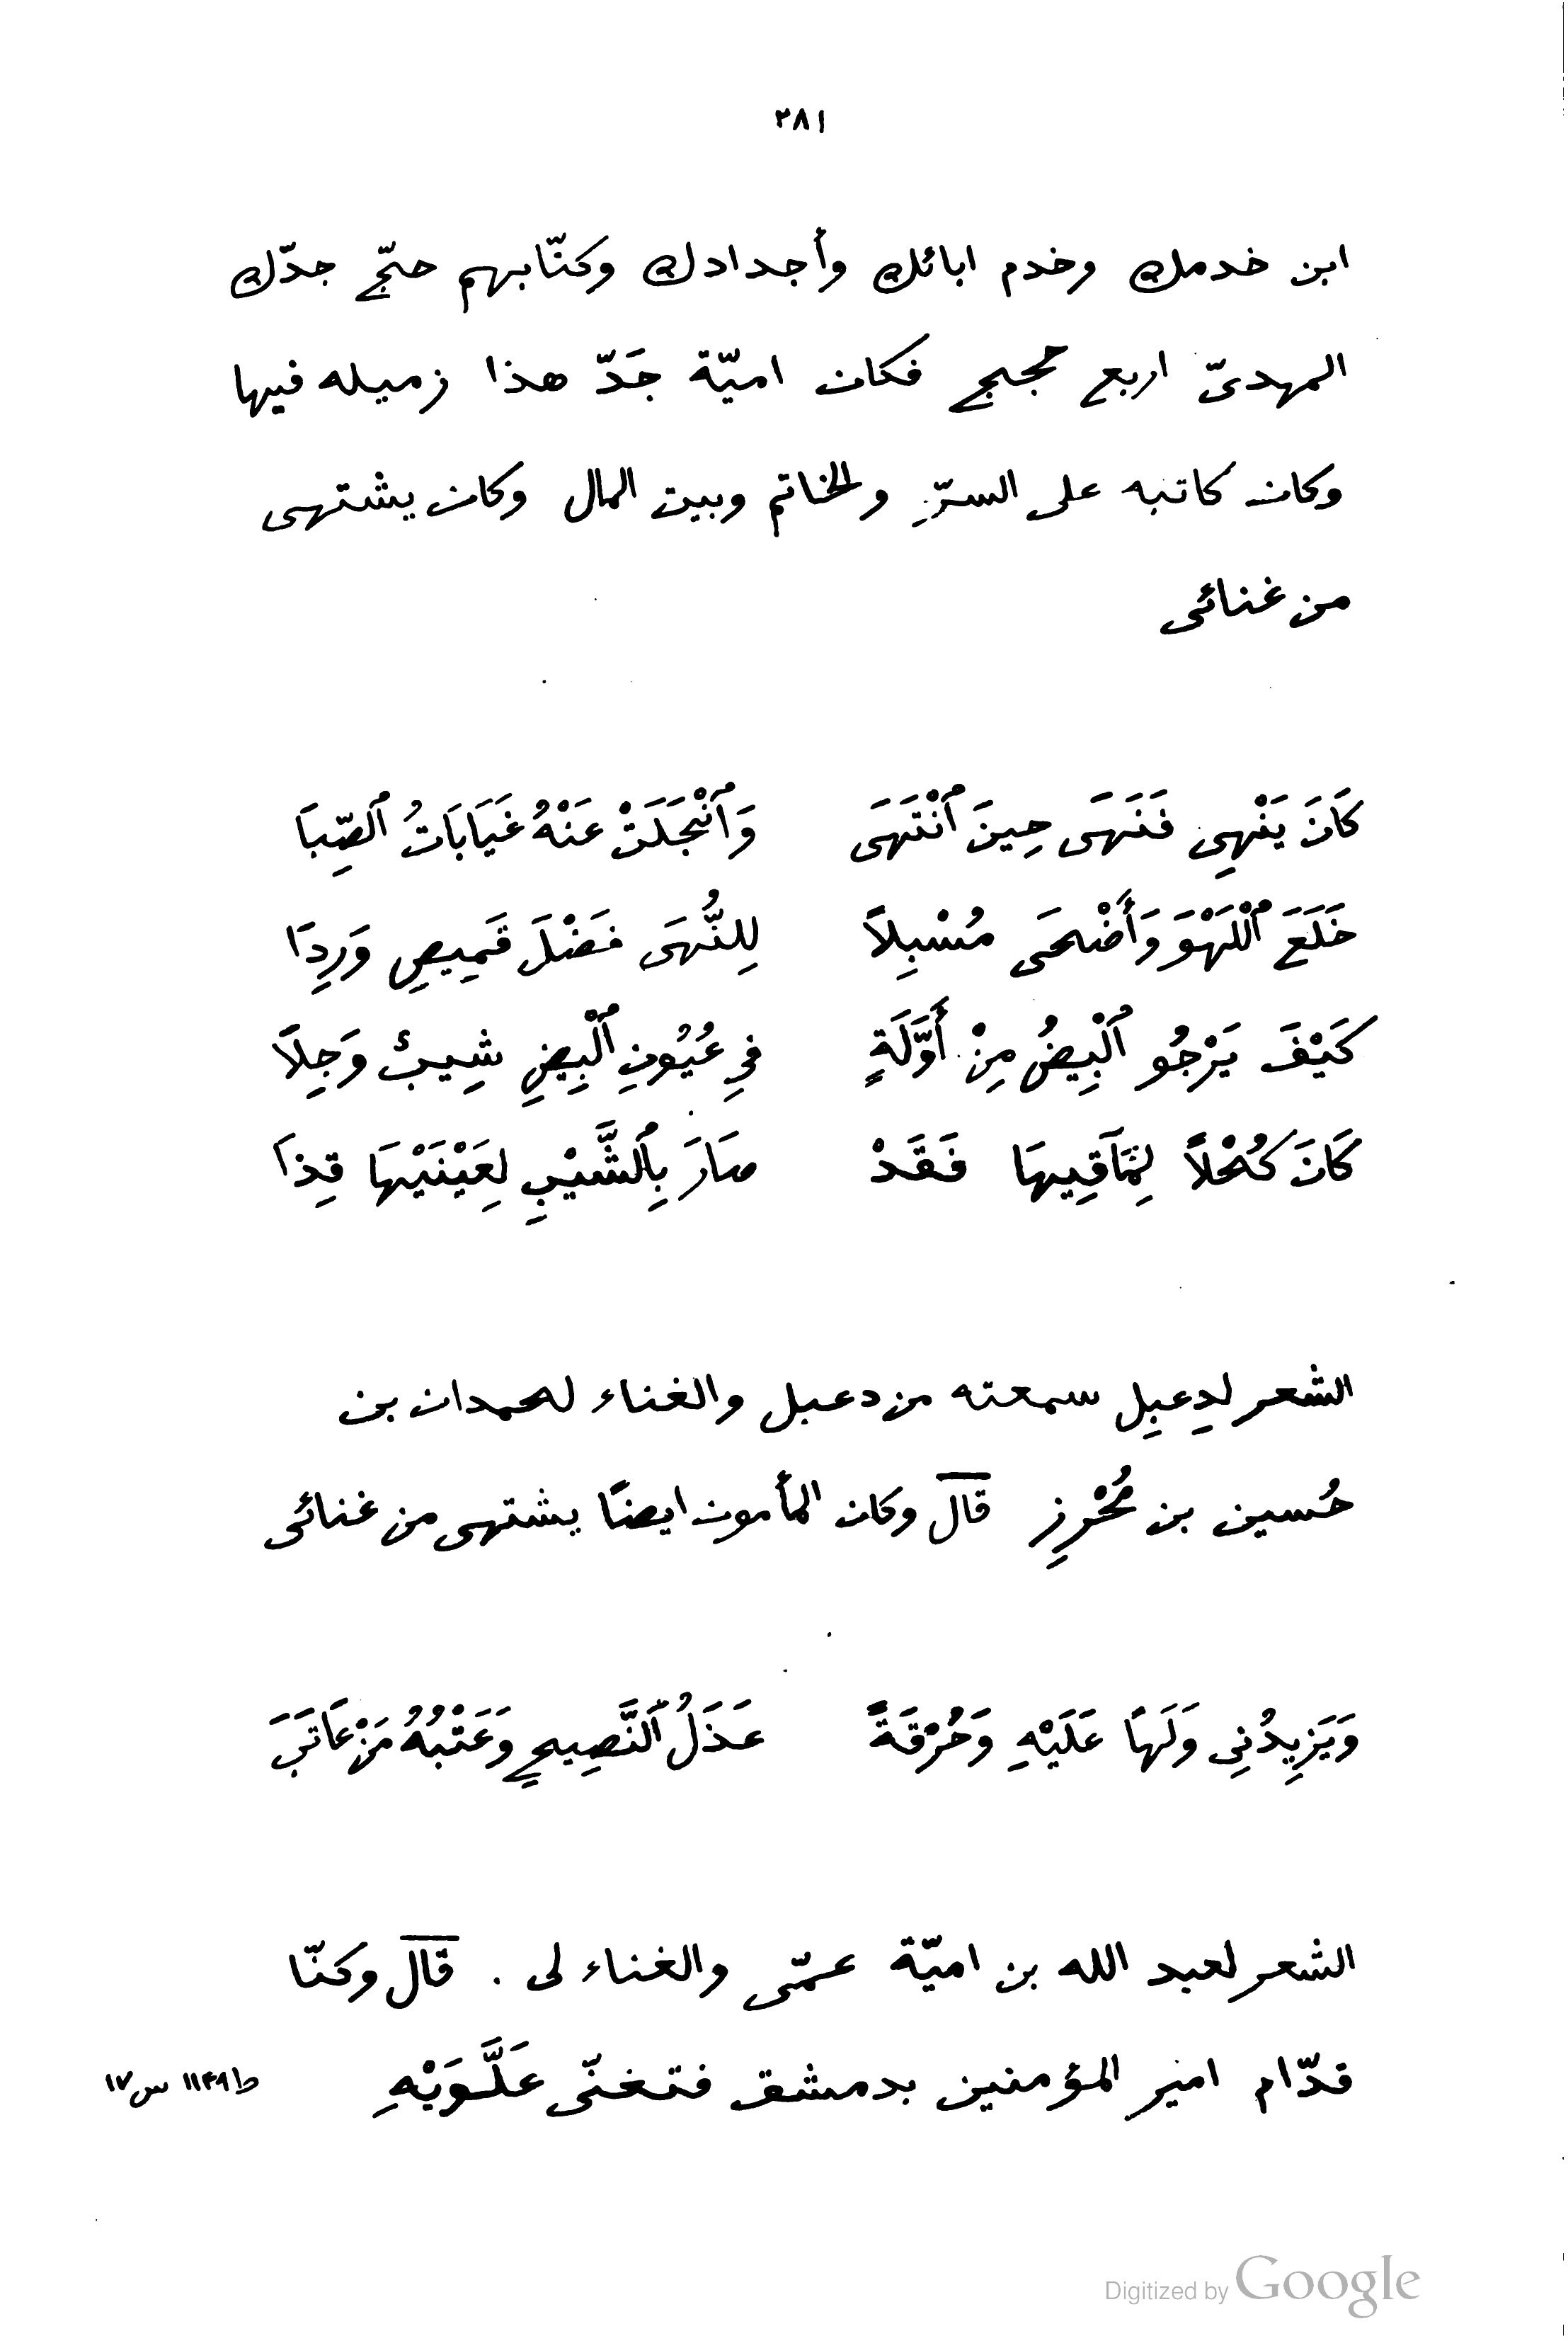 ٢٨١
ابن خدمك وخدم ابائك وأجدادك وكتّابهم حجّ جدّك
المهدىّ اربع حجج فكان اميّة جَدّ هذا زميله فيها
وكان كاتبه على السرّ والخاتم وبيت المال وكان يشتهى
من غنائى
كَانَ يَنْهِى فَنَهَى حِينَ ٱنْتَهَى وَٱنْجَلَتْ عَنْهُ غَيَابَاتُ ٱلصِّبَا
خَلَعَ ٱللَّهْوَ وَأَضْحَى مُسْبِلاً لِلنُّهَى فَضْلَ قَمِيصٍ وَرِدَا
كَيْفَ يَرْجُو ٱلْبِيضُ مِنْ أَوَّلَةٍ فِى عُيُونِ ٱلْبِيضِ شِيبٌ وَجِلاَ
كَانَ كُحْلاً لِمَآقِيهَا فَقَدْ صَارَ بِٱلشَّيْبِ لِعَيْنَيْهَا قِذَا
الشعر لدِعبِل سمعته من دعبل والغناء لحمدان بن
حُسين بن مُحْرِزٍ قال وكان المأمون ايضًا يشتهى من غنائى
وَيَزِيدُنِى وَلَهًا عَلَيْهِ وَحُرْقَةً عَذَلُ ٱلنَّصِيحِ وَعَتْبُهُ مَنْ عَاتَبَ
الشعر لعبد الله بن اميّة عمّى والغناء لى . قال وكنّا
قدّام امير المؤمنين بدمشق فتغنّى عَلَّوَيْهِ
ط ١١٤٩ س ١٧
Digitized by Google